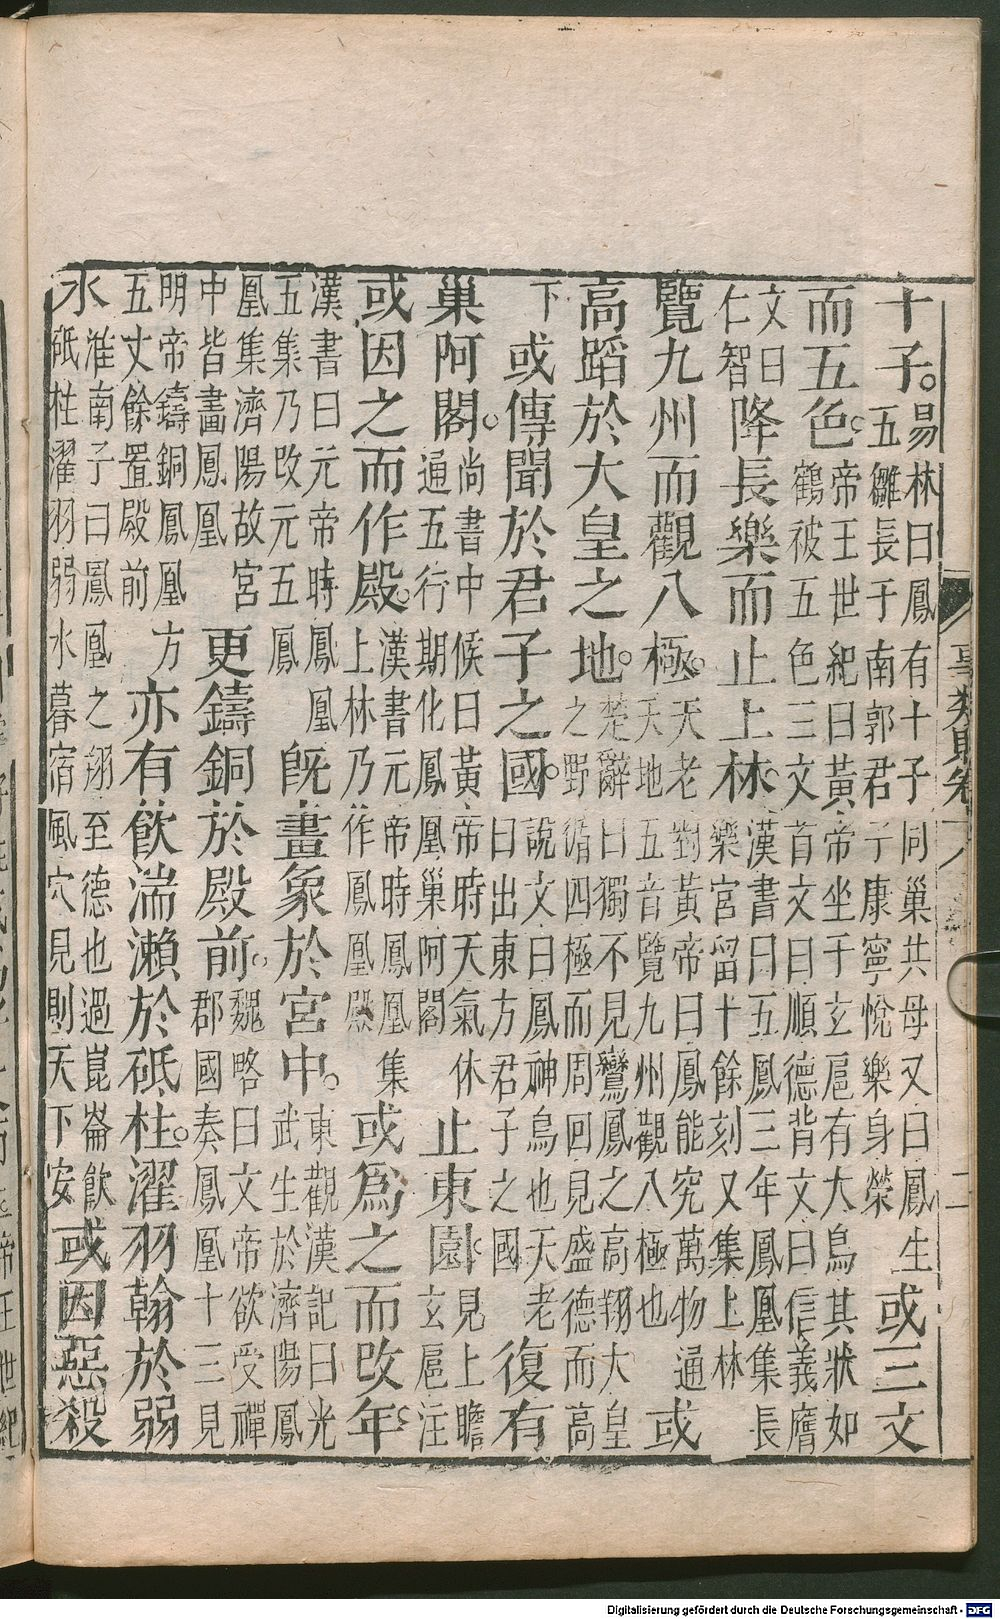 十子。易林曰鳳有十子同巢共母又曰鳳生五雛長于南郭君子康寧悅樂身榮或三文
而五色。帝王世紀曰黃帝坐于玄扈有大鳥其狀如鶴被五色三文首文曰順德背文曰信義膺
文曰仁智降長樂而止上林。漢書曰五鳳三年鳳凰集長樂宮留十餘刻又集上林
覽九州而觀八極。天老對黃帝曰鳳能究萬物通天地五音覽九州觀八極也或
高蹈於大皇之地。楚辭曰獨不見鸞鳳之高翔大皇之野循四極而周回見盛德而高
下或傳聞於君子之國。說文曰鳳神鳥也天老曰出東方君子之國復有
巢阿閣。尚書中候曰黃帝時天氣休通五行期化鳳凰巢阿閣止東園。見上瞻玄扈注
或因之而作殿。漢書元帝時鳳凰集上林乃作鳳凰殿或爲之而改年。
漢書曰元帝時鳳凰五集乃改元五鳳旣畫象於宮中。東觀漢記曰光武生於濟陽鳳
凰集濟陽故宮中皆畫鳳凰更鑄銅於殿前。魏略曰文帝欲受禪郡國奏鳳凰十三見
明帝鑄銅鳳凰方五丈餘置殿前亦有飲湍瀨於砥柱。濯羽翰於弱
水淮南子曰鳳凰之翔至德也過崑崙飲砥柱濯羽弱水暮宿風穴見則天下安或因惡殺
事類賦卷十八
二
Digitalisierung gefördert durch die Deutsche Forschungsgemeinschaft - DFG